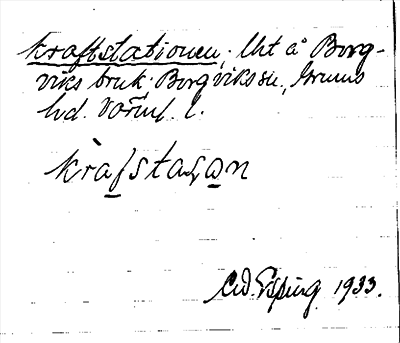 kraftstationen; Uht å Borg-
viks bruk; Borgviks sn, Grums
hd. Värml. l.
kràfstaʂan
1933.